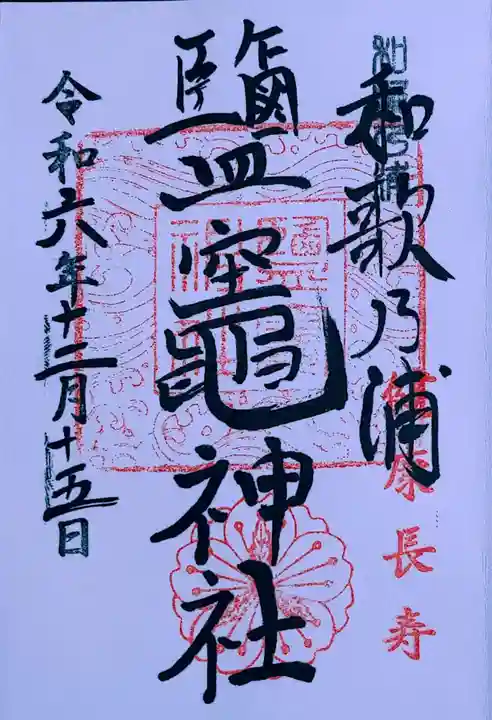 和歌乃浦
康長寿
鹽竈神社
令和六年十二月十五日